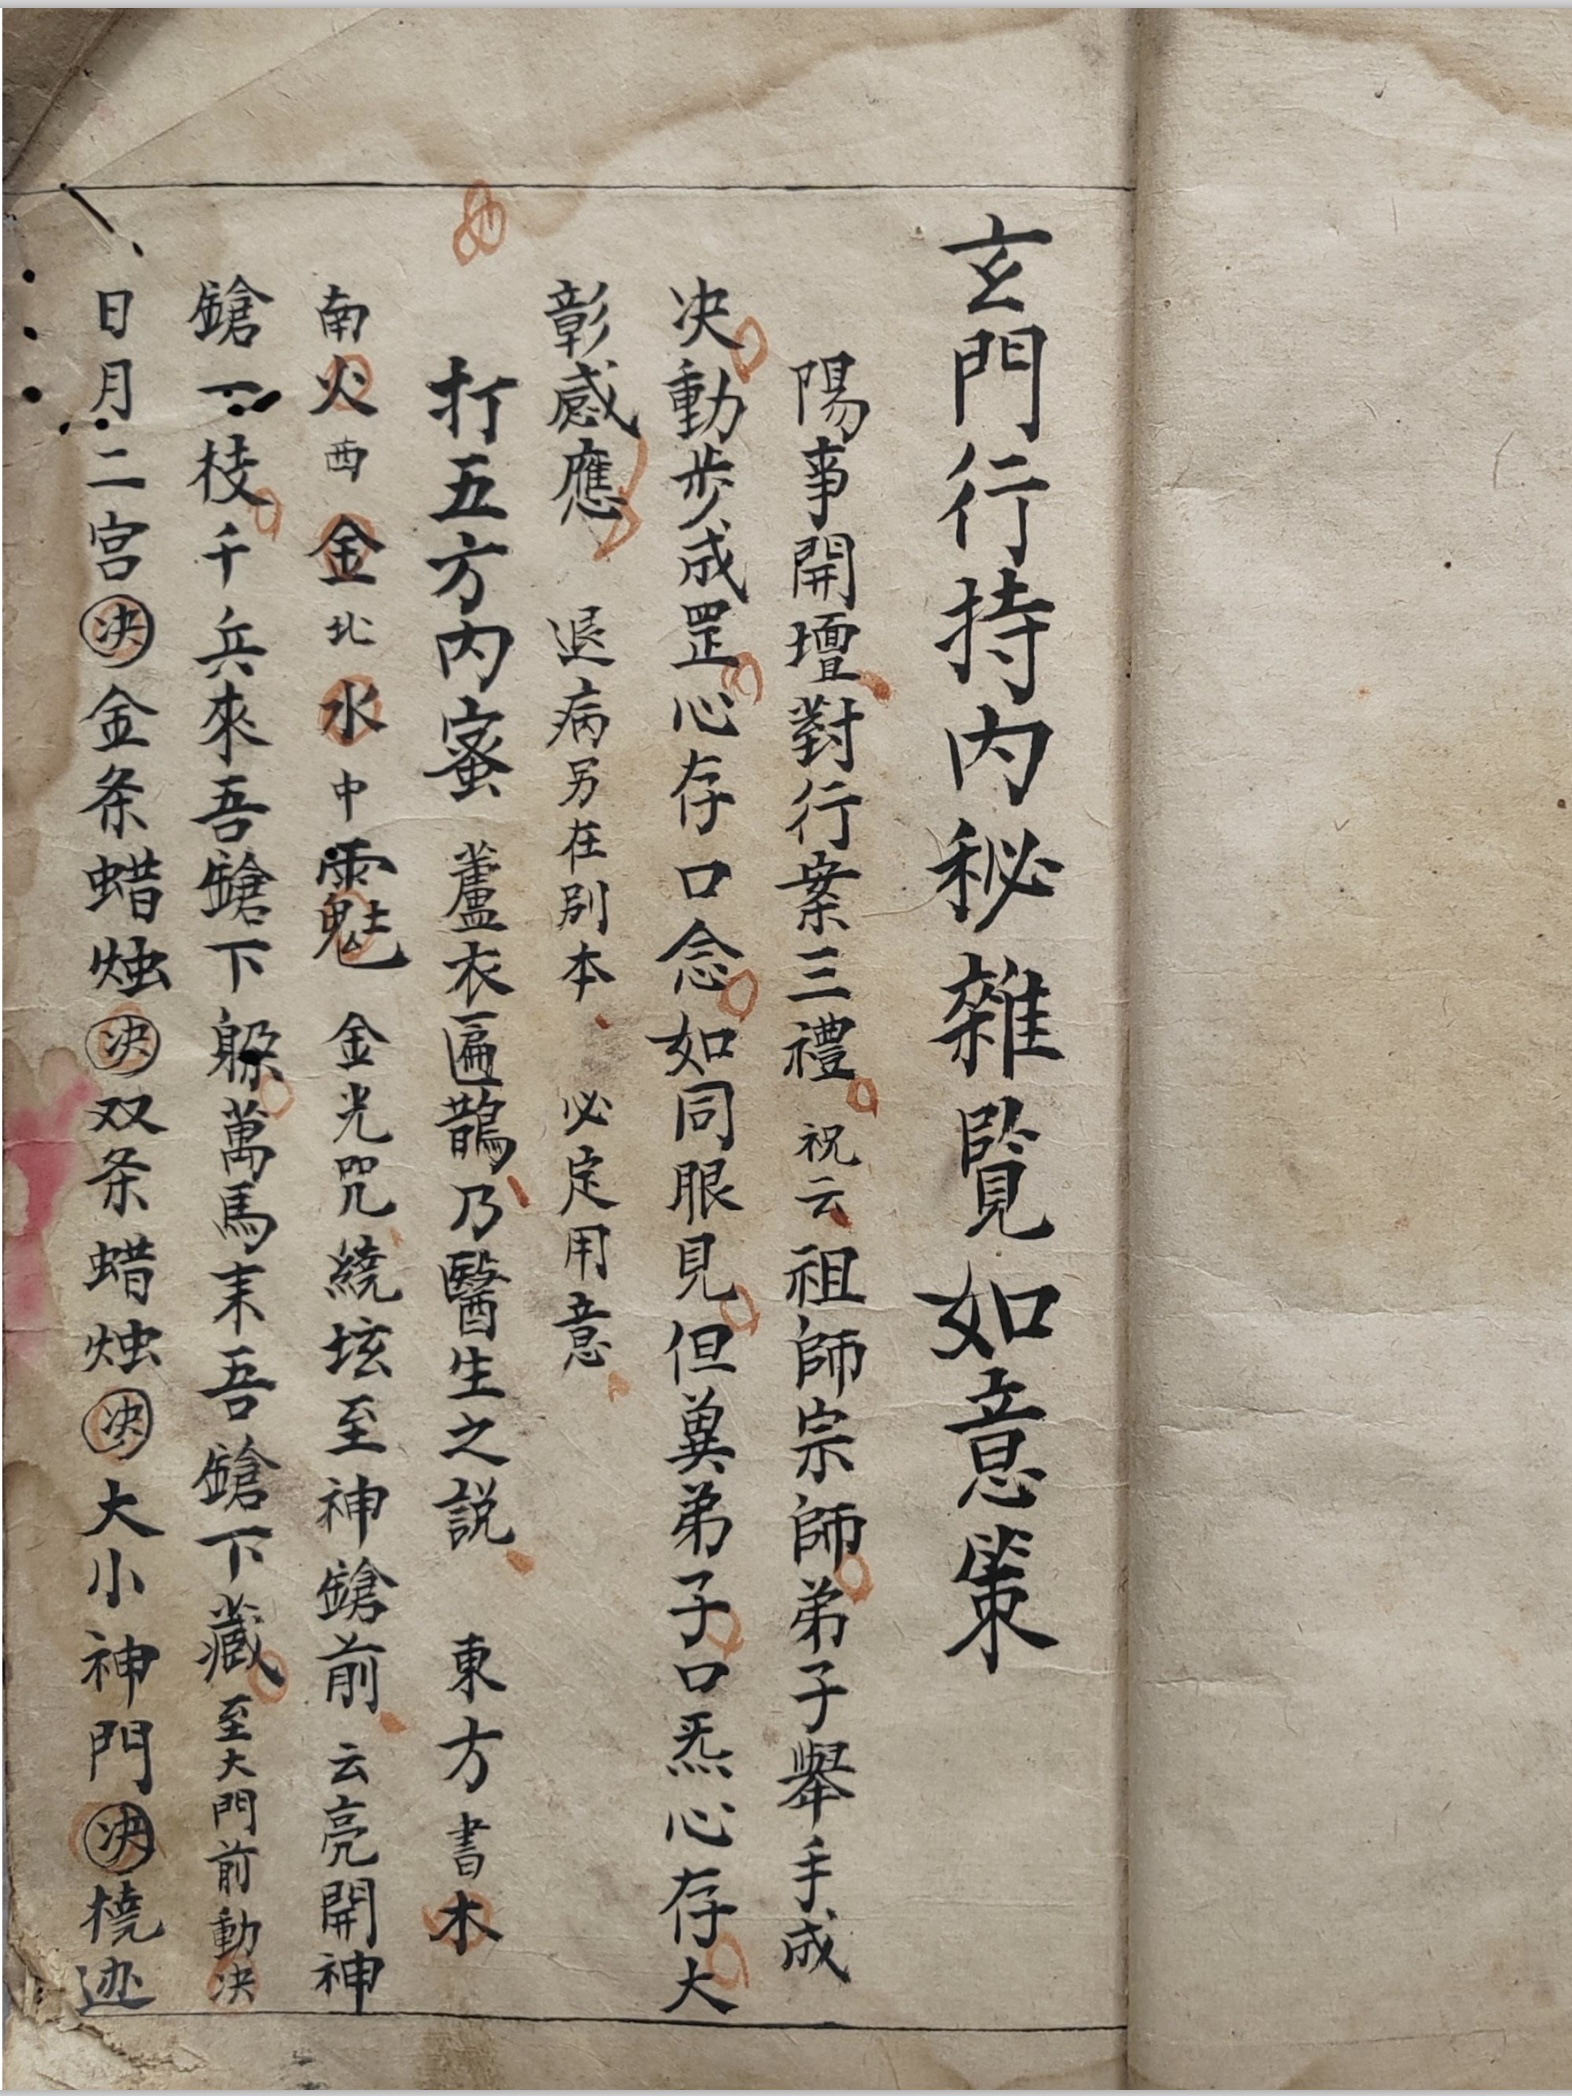 玄門行持内秘雜覽如意策
陽事開壇對行案三禮祝云祖師宗師弟子舉手成
决動步成罡心存口念如同眼見但奠弟子口炁心存大
彰感應 退病另在别本 必定用意
打五方内蜜 蘆衣匾鵲乃醫生之説 東方書木
南火西金北水中 金光咒繞坛至神鎗前云亮開神
鎗一枝千兵來吾鎗下躲萬馬來吾鎗下藏至大門前動决
日月二宫决金条蜡烛决双条蜡烛决大小神門决橈迹